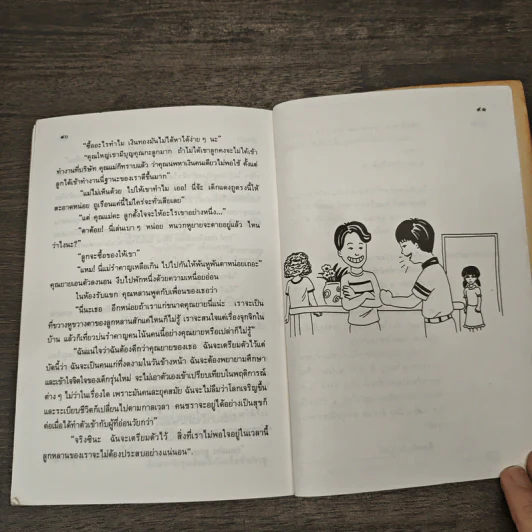 ๕๐
"ซื้ออะไรทำไม เงินทองมันไม่ได้หาได้ง่าย ๆ นะ"
"คุณใหญ่เขามีบุญคุณกะลูกมาก ถ้าไม่ได้เขาลูกคงจะไม่ได้เข้า
ทำงานที่บริษัท คุณแม่ก็ทราบแล้ว ว่าคุณนพหาเงินคนเดียวไม่พอใช้ ตั้งแต่
ลูกได้เข้าทำงานนี่ฐานะของเราดีขึ้นมาก"
"แม่ไม่เห็นด้วย ไปให้เขาทำไม เออ! นี่จ๊ะ เด็กแดงถูตรงนี้ให้
สะอาดหน่อย ถูเรือนแค่นี้ไม่ใคร่จะทั่วเสียเลย"
"แต่ คุณแม่คะ ลูกตั้งใจจะให้อะไรเขาอย่างหนึ่ง..."
"ตาต้อย! นี่เล่นเบา ๆ หน่อย หนวกหูยายจะตายอยู่แล้ว ไหน
ว่าไงนะ?"
"ลูกจะซื้อของให้เขา"
"แหม! นี่แม่รำคาญเหลือเกิน ไปไปกันให้พ้นหูพ้นตาหน่อยเถอะ"
คุณยายเอนตัวลงนอน งีบไปพักหนึ่งด้วยความเหนื่อยอ่อน
ในห้องรับแขก คุณหลานพูดกับเพื่อนของเธอว่า
"นี่นะเธอ อีกหน่อยถ้าเราแก่ขนาดคุณยายนี่แน่ะ เราจะเป็น
ที่ขวางหูขวางตาของลูกหลานสักแค่ไหนก็ไม่รู้ เราจะสนใจแต่เรื่องจุกจิกใน
บ้าน แล้วก็เที่ยวบ่นรำคาญคนโน้นคนนี้อย่างคุณยายหรือเปล่าก็ไม่รู้"
"ฉันแน่ใจว่าฉันต้องดีกว่าคุณยายของเธอ ฉันจะเตรียมตัวไว้แต่
บัดนี้ว่า ฉันจะเป็นคนแก่ที่งดงามในวันข้างหน้า ฉันจะต้องพยายามศึกษา
และเข้าใจจิตใจของเด็กรุ่นใหม่ จะไม่เอาตัวเองเข้าเปรียบเทียบในพฤติการณ์
ต่าง ๆ ไม่ว่าในเรื่องใด เพราะมันคนละยุคสมัย ฉันจะไม่ลืมว่าโลกเจริญขึ้น
และระเบียบชีวิตก็เปลี่ยนไปตามกาลเวลา คนชราจะอยู่ได้อย่างเป็นสุขก็
ต่อเมื่อได้ทำตัวเข้ากับผู้ที่อ่อนวัยกว่า"
"จริงซินะ ฉันจะเตรียมตัวไว้ สิ่งที่เราไม่พอใจอยู่ในเวลานี้
ลูกหลานของเราจะไม่ต้องประสบอย่างแน่นอน".
๕๑